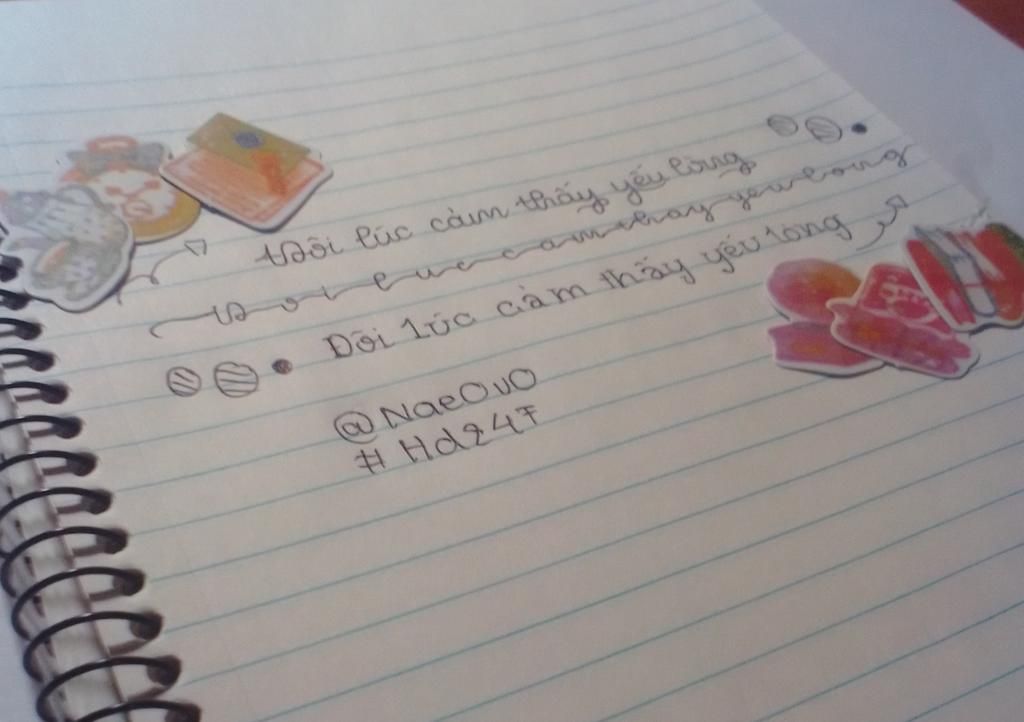 Đôi lúc cảm thấy yếu lòng
Doi luc cam thay yeu long
Đôi lúc cảm thấy yếu lòng
@NaeOvO
#Hd247